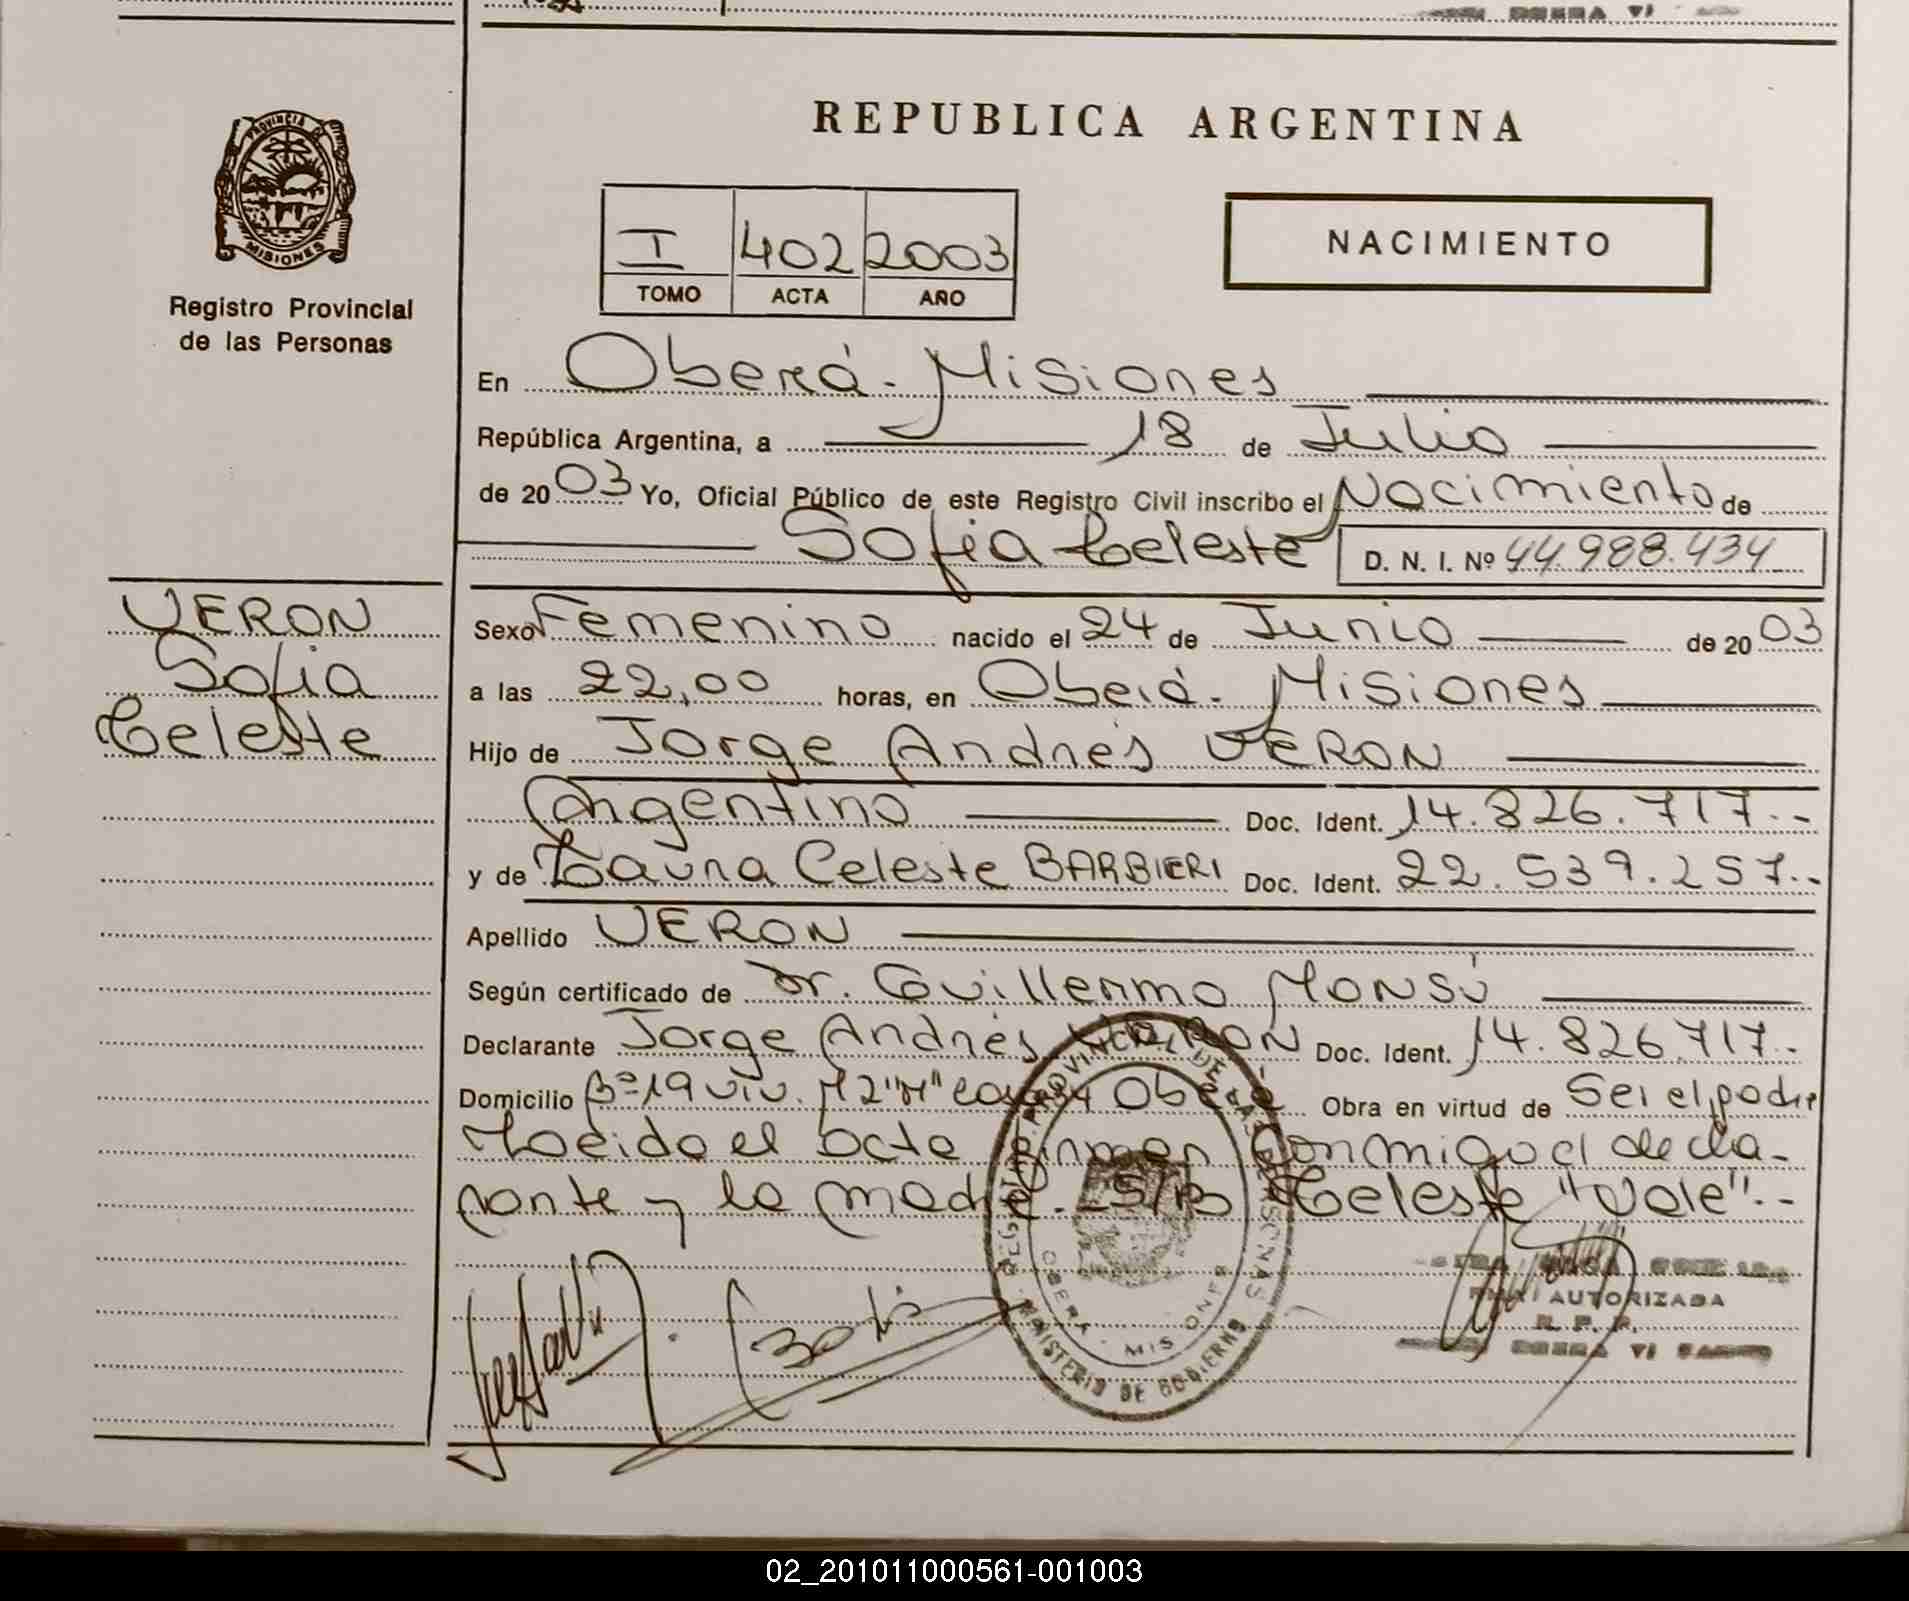 REPUBLICA ARGENTINA
PROVINCIA D
MISIONES
Registro Provincial
de las Personas
I 402 2003
TOMO ACTA AÑO
NACIMIENTO
En Oberá - Misiones
República Argentina, a 18 de Julio
de 2003 Yo, Oficial Público de este Registro Civil inscribo el Nacimiento de
Sofia Celeste D. N. I. Nº 44.988.434
VERON
Sofia
Celeste
Sexo Femenino nacido el 24 de Junio de 2003
a las 22,00 horas, en Oberá - Misiones
Hijo de Jorge Andrés VERON
Argentino Doc. Ident. 14.826.717.-
y de Laura Celeste BARBIERI Doc. Ident. 22.539.257.-
Apellido VERON
Según certificado de Dr. Guillermo Monsú
Declarante Jorge Andrés VERON Doc. Ident. 14.826.717.-
Domicilio Bº 19 viv. M2 "M" casa Oberá Obra en virtud de Ser el padre
Leida el acta firman conmigo el decla-
rante y la madre. S/R Celeste "Vale".-
REGISTRO PROVINCIAL DE LAS PERSONAS
OBERA - MISIONES
MINISTERIO DE GOBIERNO
FIRMA AUTORIZADA
R. P. P.
OBERA VI
02_201011000561-001003